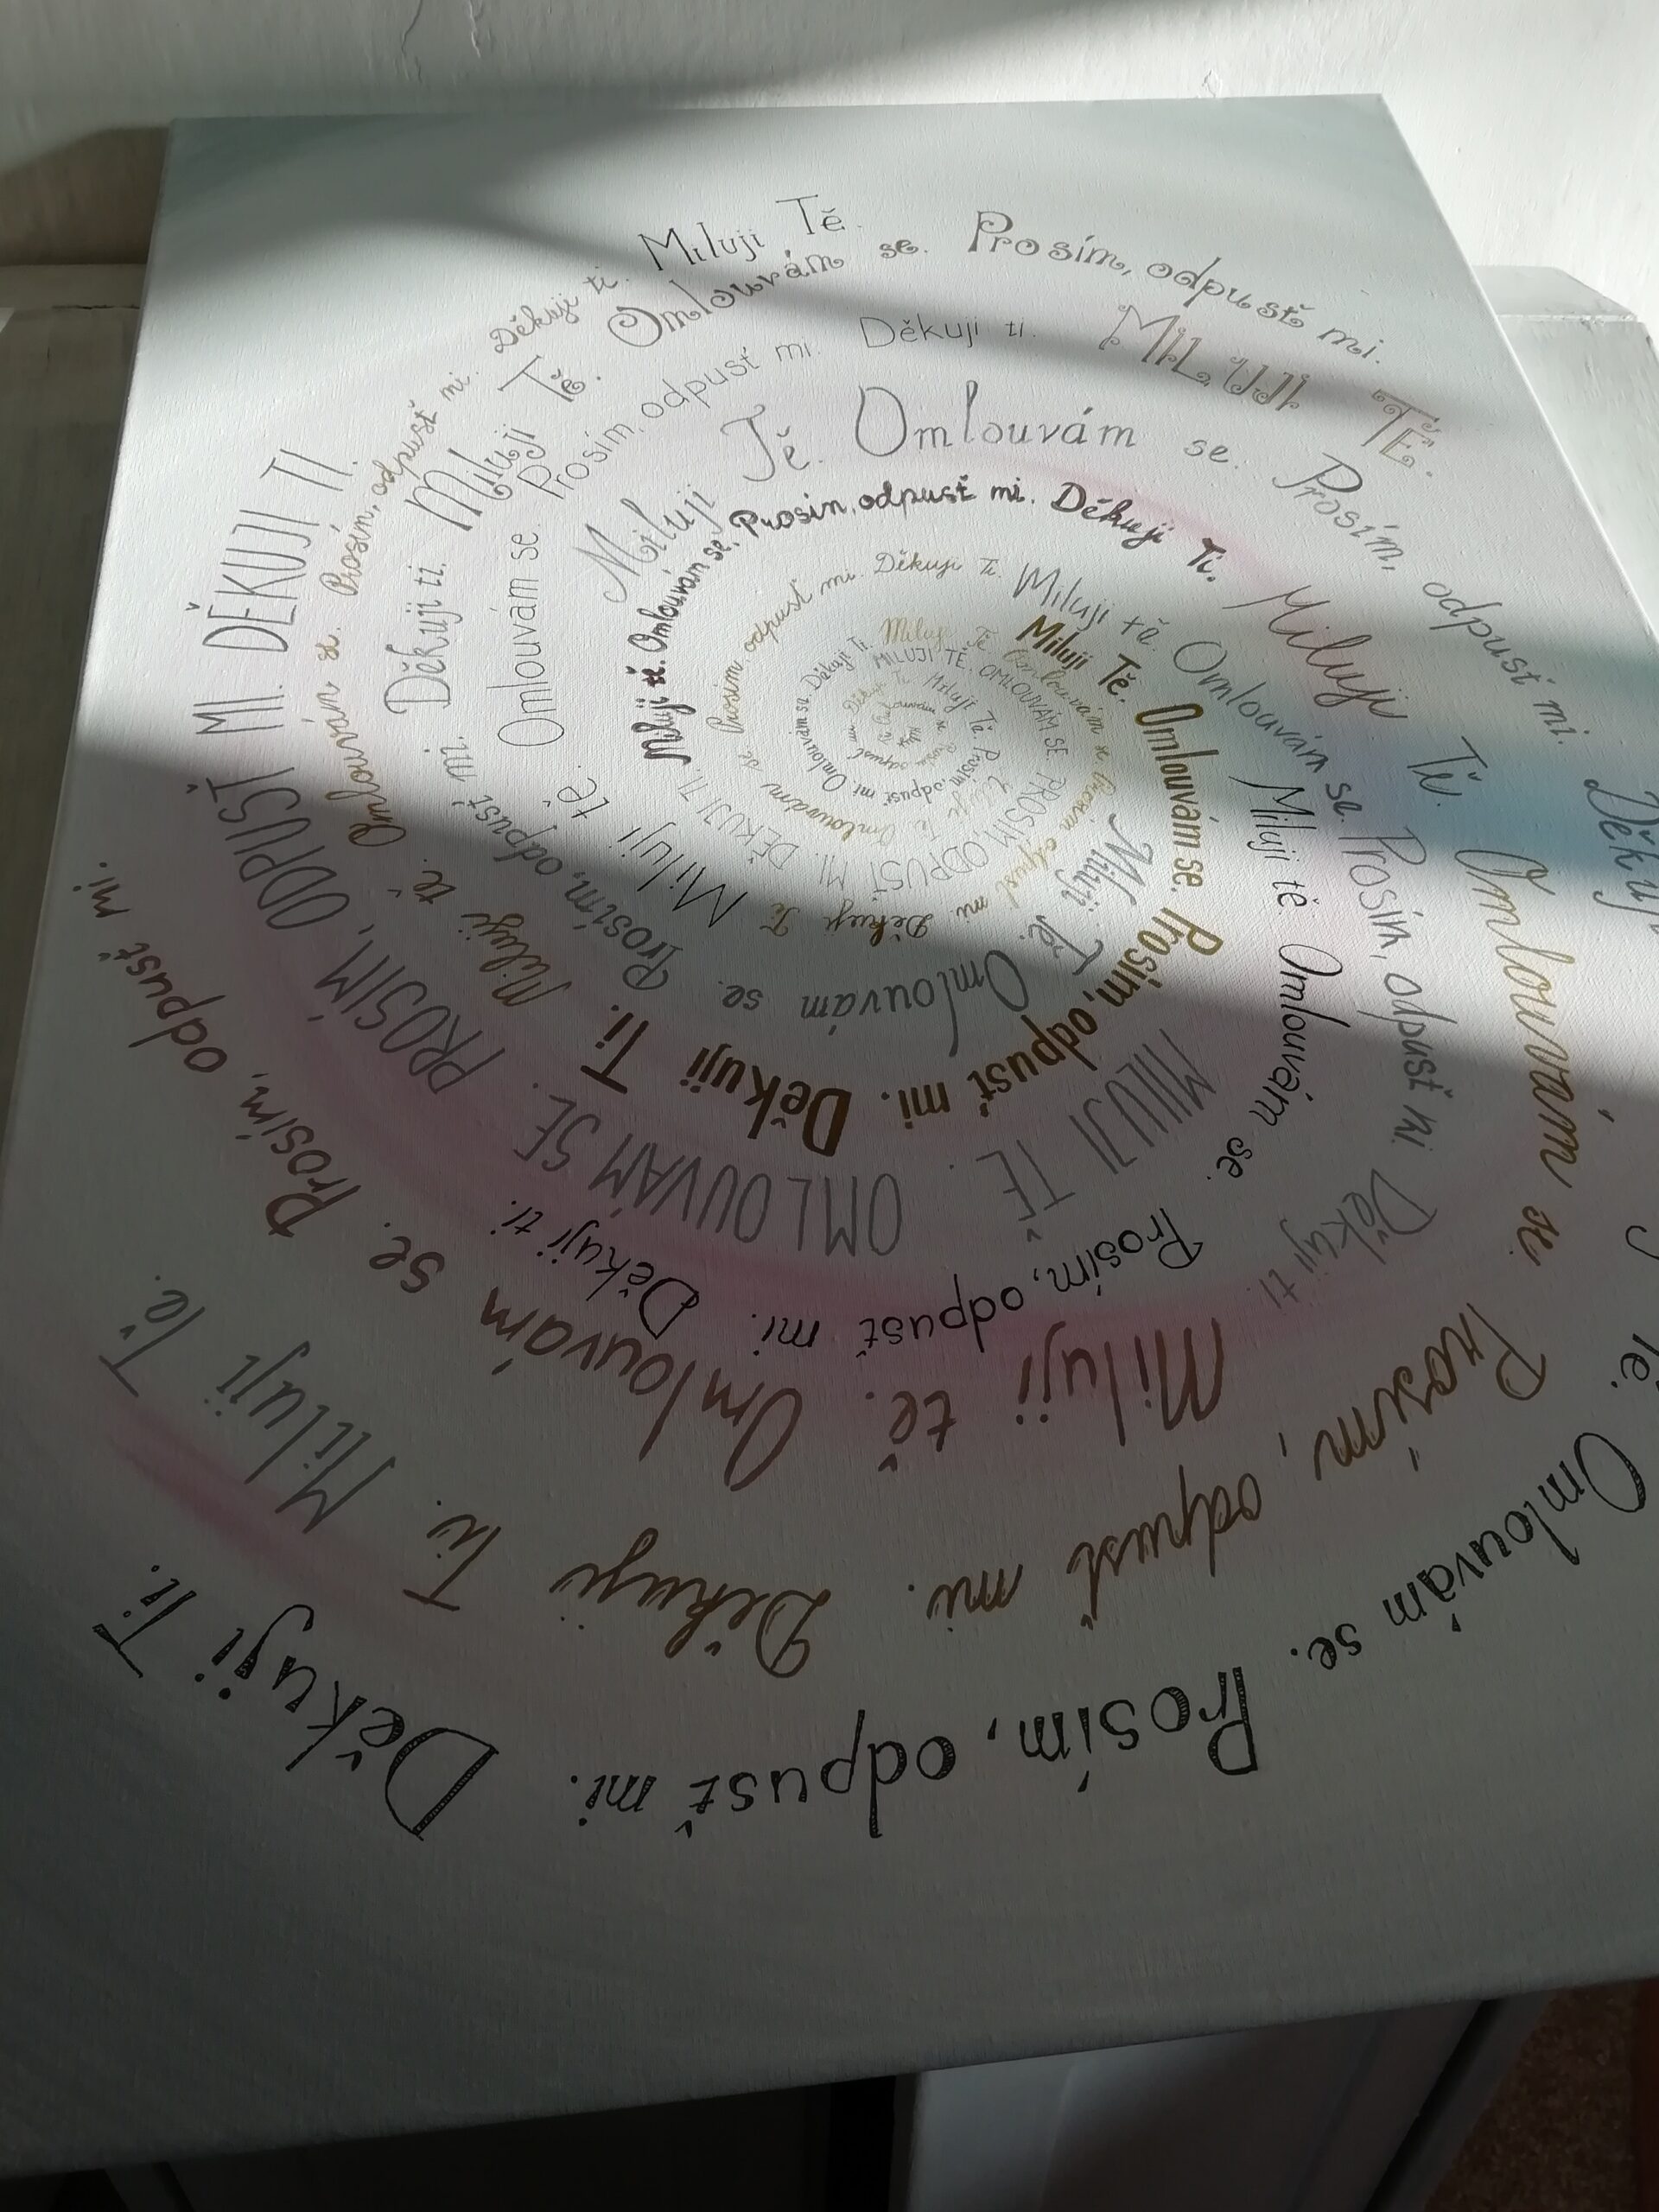 Děkuji ti. Miluji Tě.
Omlouvám se. Prosím, odpusť mi.
Děkuji ti. Miluji Tě.
Prosím, odpusť mi. Děkuji ti. MILUJI TĚ.
Omlouvám se.
Miluji Tě. Omlouvám se. Prosím, odpusť mi.
Miluji tě. Omlouvám se. Prosím, odpusť mi. Děkuji Ti.
Miluji Tě. Omlouvám se. Prosím, odpusť mi. Děkuji Ti.
Omlouvám se. Prosím, odpusť mi. Děkuji Ti.
Miluji tě. Omlouvám se. Prosím, odpusť mi. Děkuji ti.
Miluji Tě. Omlouvám se. Prosím, odpusť mi. Děkuji Ti.
MILUJI TĚ. OMLOUVÁM SE. PROSÍM, ODPUSŤ MI. DĚKUJI TI.
Miluji Tě. Omlouvám se. Prosím, odpusť mi.
Miluji tě.
MILUJI TĚ. OMLOUVÁM SE. PROSÍM, ODPUSŤ MI. DĚKUJI TI.
Miluji tě. Omlouvám se. Prosím, odpusť mi.
Miluji tě. Omlouvám se. Prosím, odpusť mi. Děkuji ti.
Miluji tě. Omlouvám se. Prosím, odpusť mi.
Děkuji Ti. Miluji Tě.
Omlouvám se. Prosím, odpusť mi. Děkuji Ti.